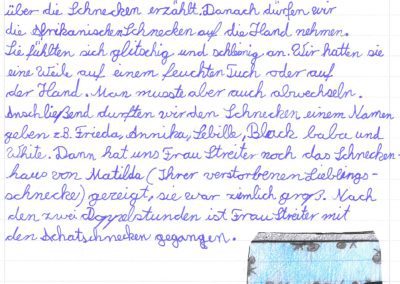 über die Schnecken erzählt. Danach dürfen wir
die Afrikanischen Schnecken auf die Hand nehmen.
Sie fühlten sich glitschig und schleimig an. Wir hatten sie
eine Weile auf einem feuchten Tuch oder auf
der Hand. Man musste aber auch abwechseln.
Anschließend durften wir den Schnecken einem Namen
geben z.B. Frieda, Annika, Sebille, Black baba und
White. Dann hat uns Frau Streiter noch das Schnecken-
haus von Matilda (Ihrer verstorbenen Lieblings-
schnecke) gezeigt, sie war zimlich groß. Nach
den zwei Doppelstunden ist Frau Streiter mit
den Schatschnecken gegangen.